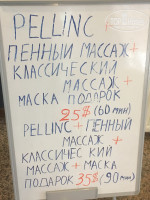 PELLINC +
ПЕННЫЙ МАССАЖ +
КЛАССИЧЕСКИЙ
МАССАЖ +
МАСКА ПОДАРОК
25$ (60 МИН)
PELLINC + ПЕННЫЙ
МАССАЖ +
КЛАССИЧЕС КИЙ
МАССАЖ + МАСКА
ПОДАРОК 35$ (90 МИН)